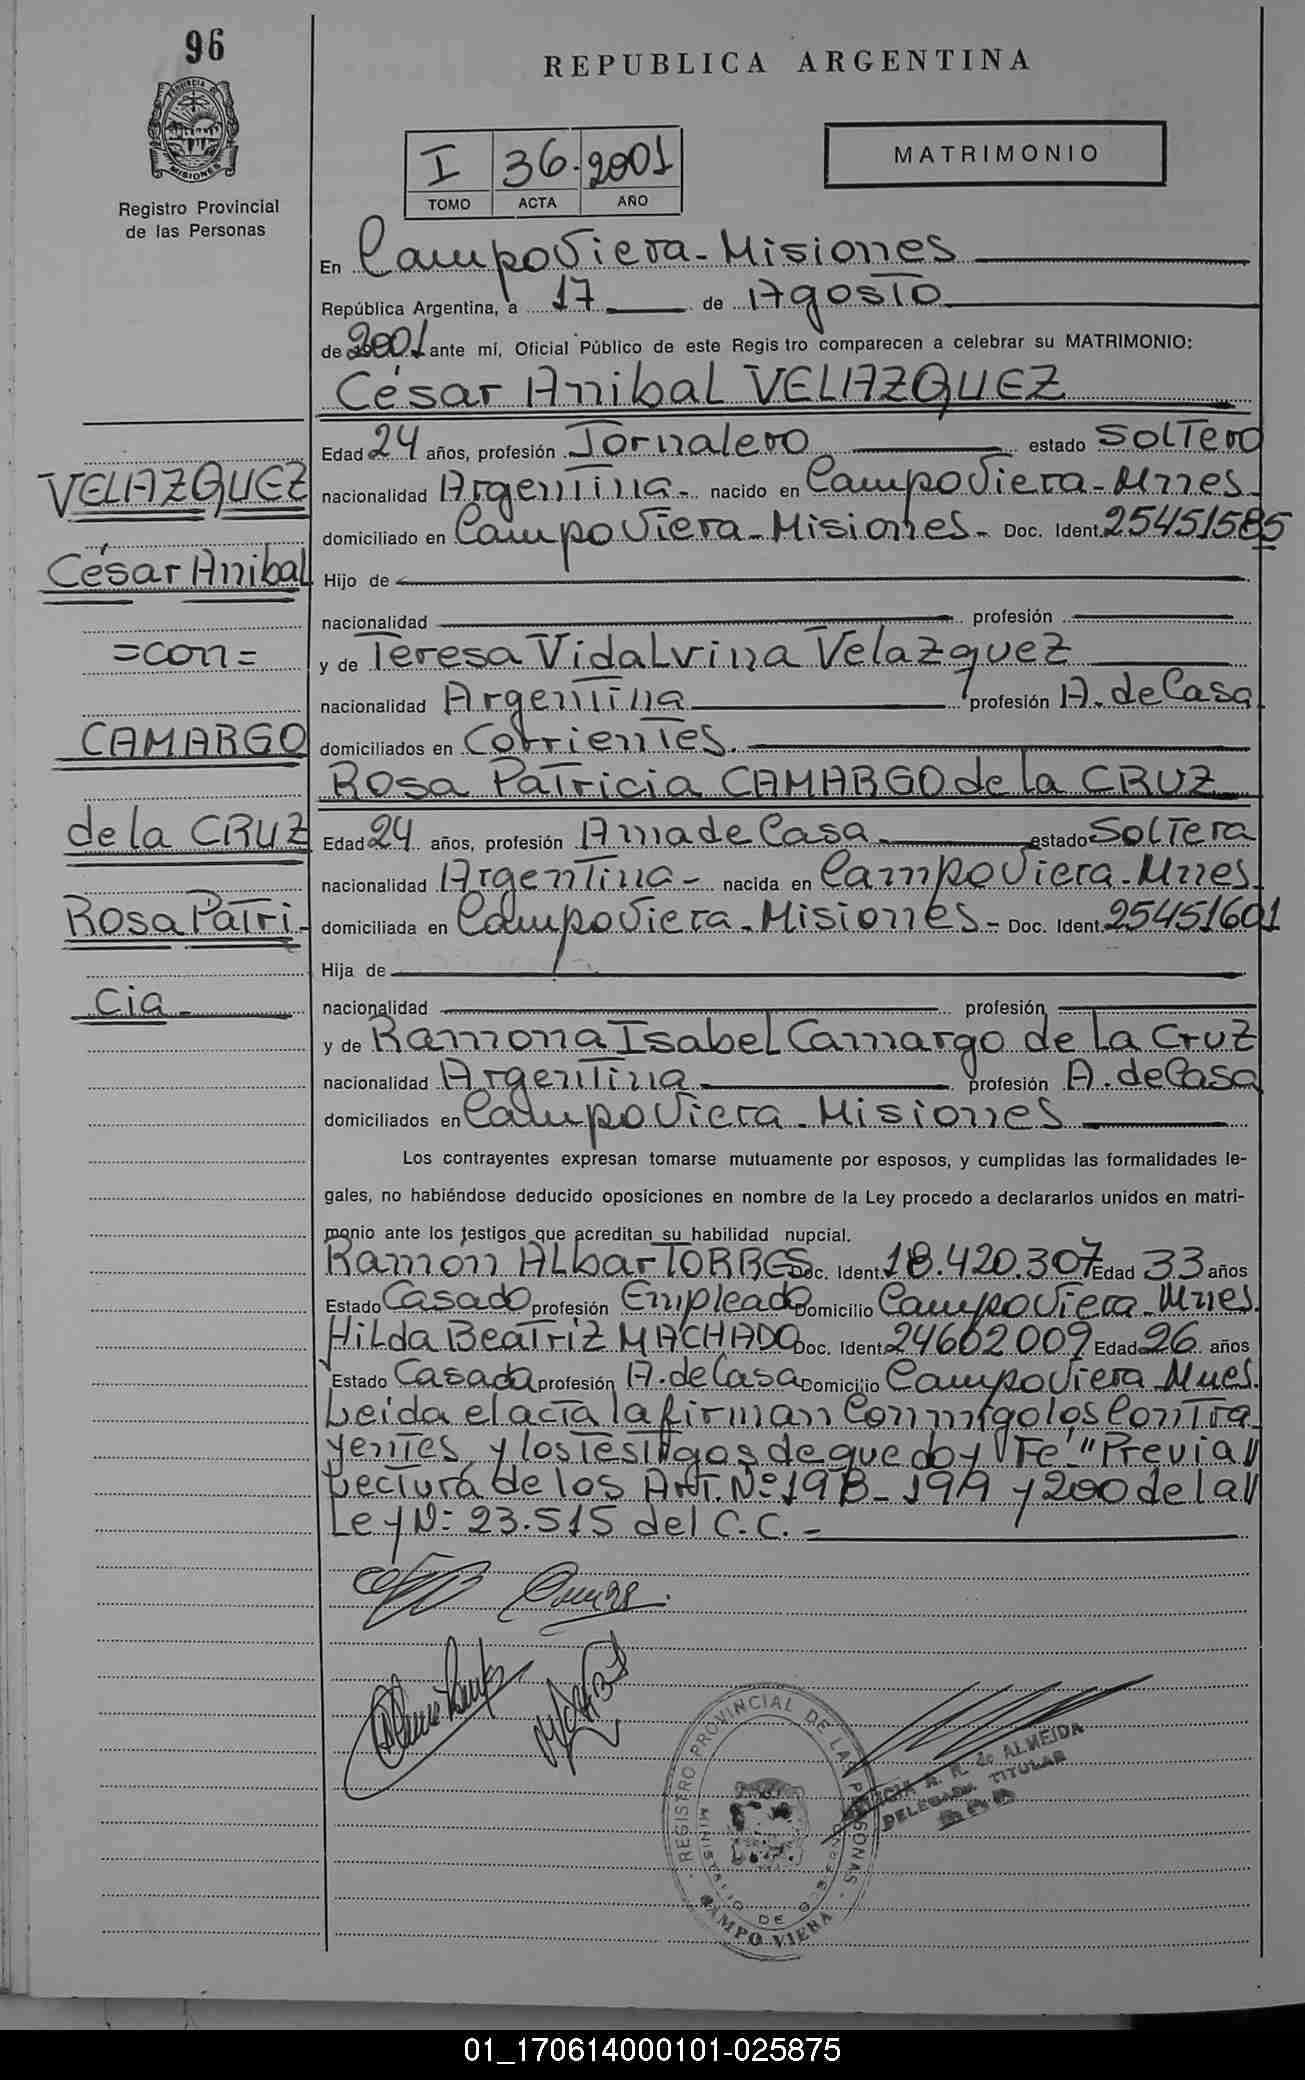 96
REPUBLICA ARGENTINA
PROVINCIA DE MISIONES
Registro Provincial
de las Personas
I 36. 2001
TOMO ACTA AÑO
MATRIMONIO
En Campo Viera - Misiones
República Argentina, a 17 de Agosto
de 2001 ante mí, Oficial Público de este Registro comparecen a celebrar su MATRIMONIO:
César Anibal VELAZQUEZ
Edad 24 años, profesión Jornalero estado Soltero
VELAZQUEZ
nacionalidad Argentina - nacido en Campo Viera - Mnes -
domiciliado en Campo Viera - Misiones - Doc. Ident. 25451585
César Anibal
Hijo de
nacionalidad profesión
=con=
y de Teresa Vidalvina Velazquez
nacionalidad Argentina profesión A. de Casa
CAMARGO
domiciliados en Corrientes.
Rosa Patricia CAMARGO de la CRUZ
de la CRUZ
Edad 24 años, profesión Ama de Casa estado Soltera
nacionalidad Argentina - nacida en Campo Viera - Mnes.
Rosa Patri-
domiciliada en Campo Viera - Misiones - Doc. Ident. 25451601
Hija de
cia -
nacionalidad profesión
y de Ramona Isabel Camargo de la Cruz
nacionalidad Argentina profesión A. de Casa
domiciliados en Campo Viera - Misiones
Los contrayentes expresan tomarse mutuamente por esposos, y cumplidas las formalidades le-
gales, no habiéndose deducido oposiciones en nombre de la Ley procedo a declararlos unidos en matri-
monio ante los testigos que acreditan su habilidad nupcial.
Ramón Albar TORRES Doc. Ident. 18.420.307 Edad 33 años
Estado Casado profesión Empleado Domicilio Campo Viera - Mnes.
Hilda Beatriz MACHADO Doc. Ident. 24602009 Edad 26 años
Estado Casada profesión A. de Casa Domicilio Campo Viera - Mnes.
Leida el acta la firman Conmigo los Contra
yentes y los testigos de que doy Fe. "Previa"
Lectura de los Art. Nº 198 - 199 y 200 de la"
Ley Nº 23.515 del C.C. -
REGISTRO PROVINCIAL DE LAS PERSONAS
CAMPO VIERA
A. R. de ALMEIDA
DELEGADA TITULAR
01_170614000101-025875